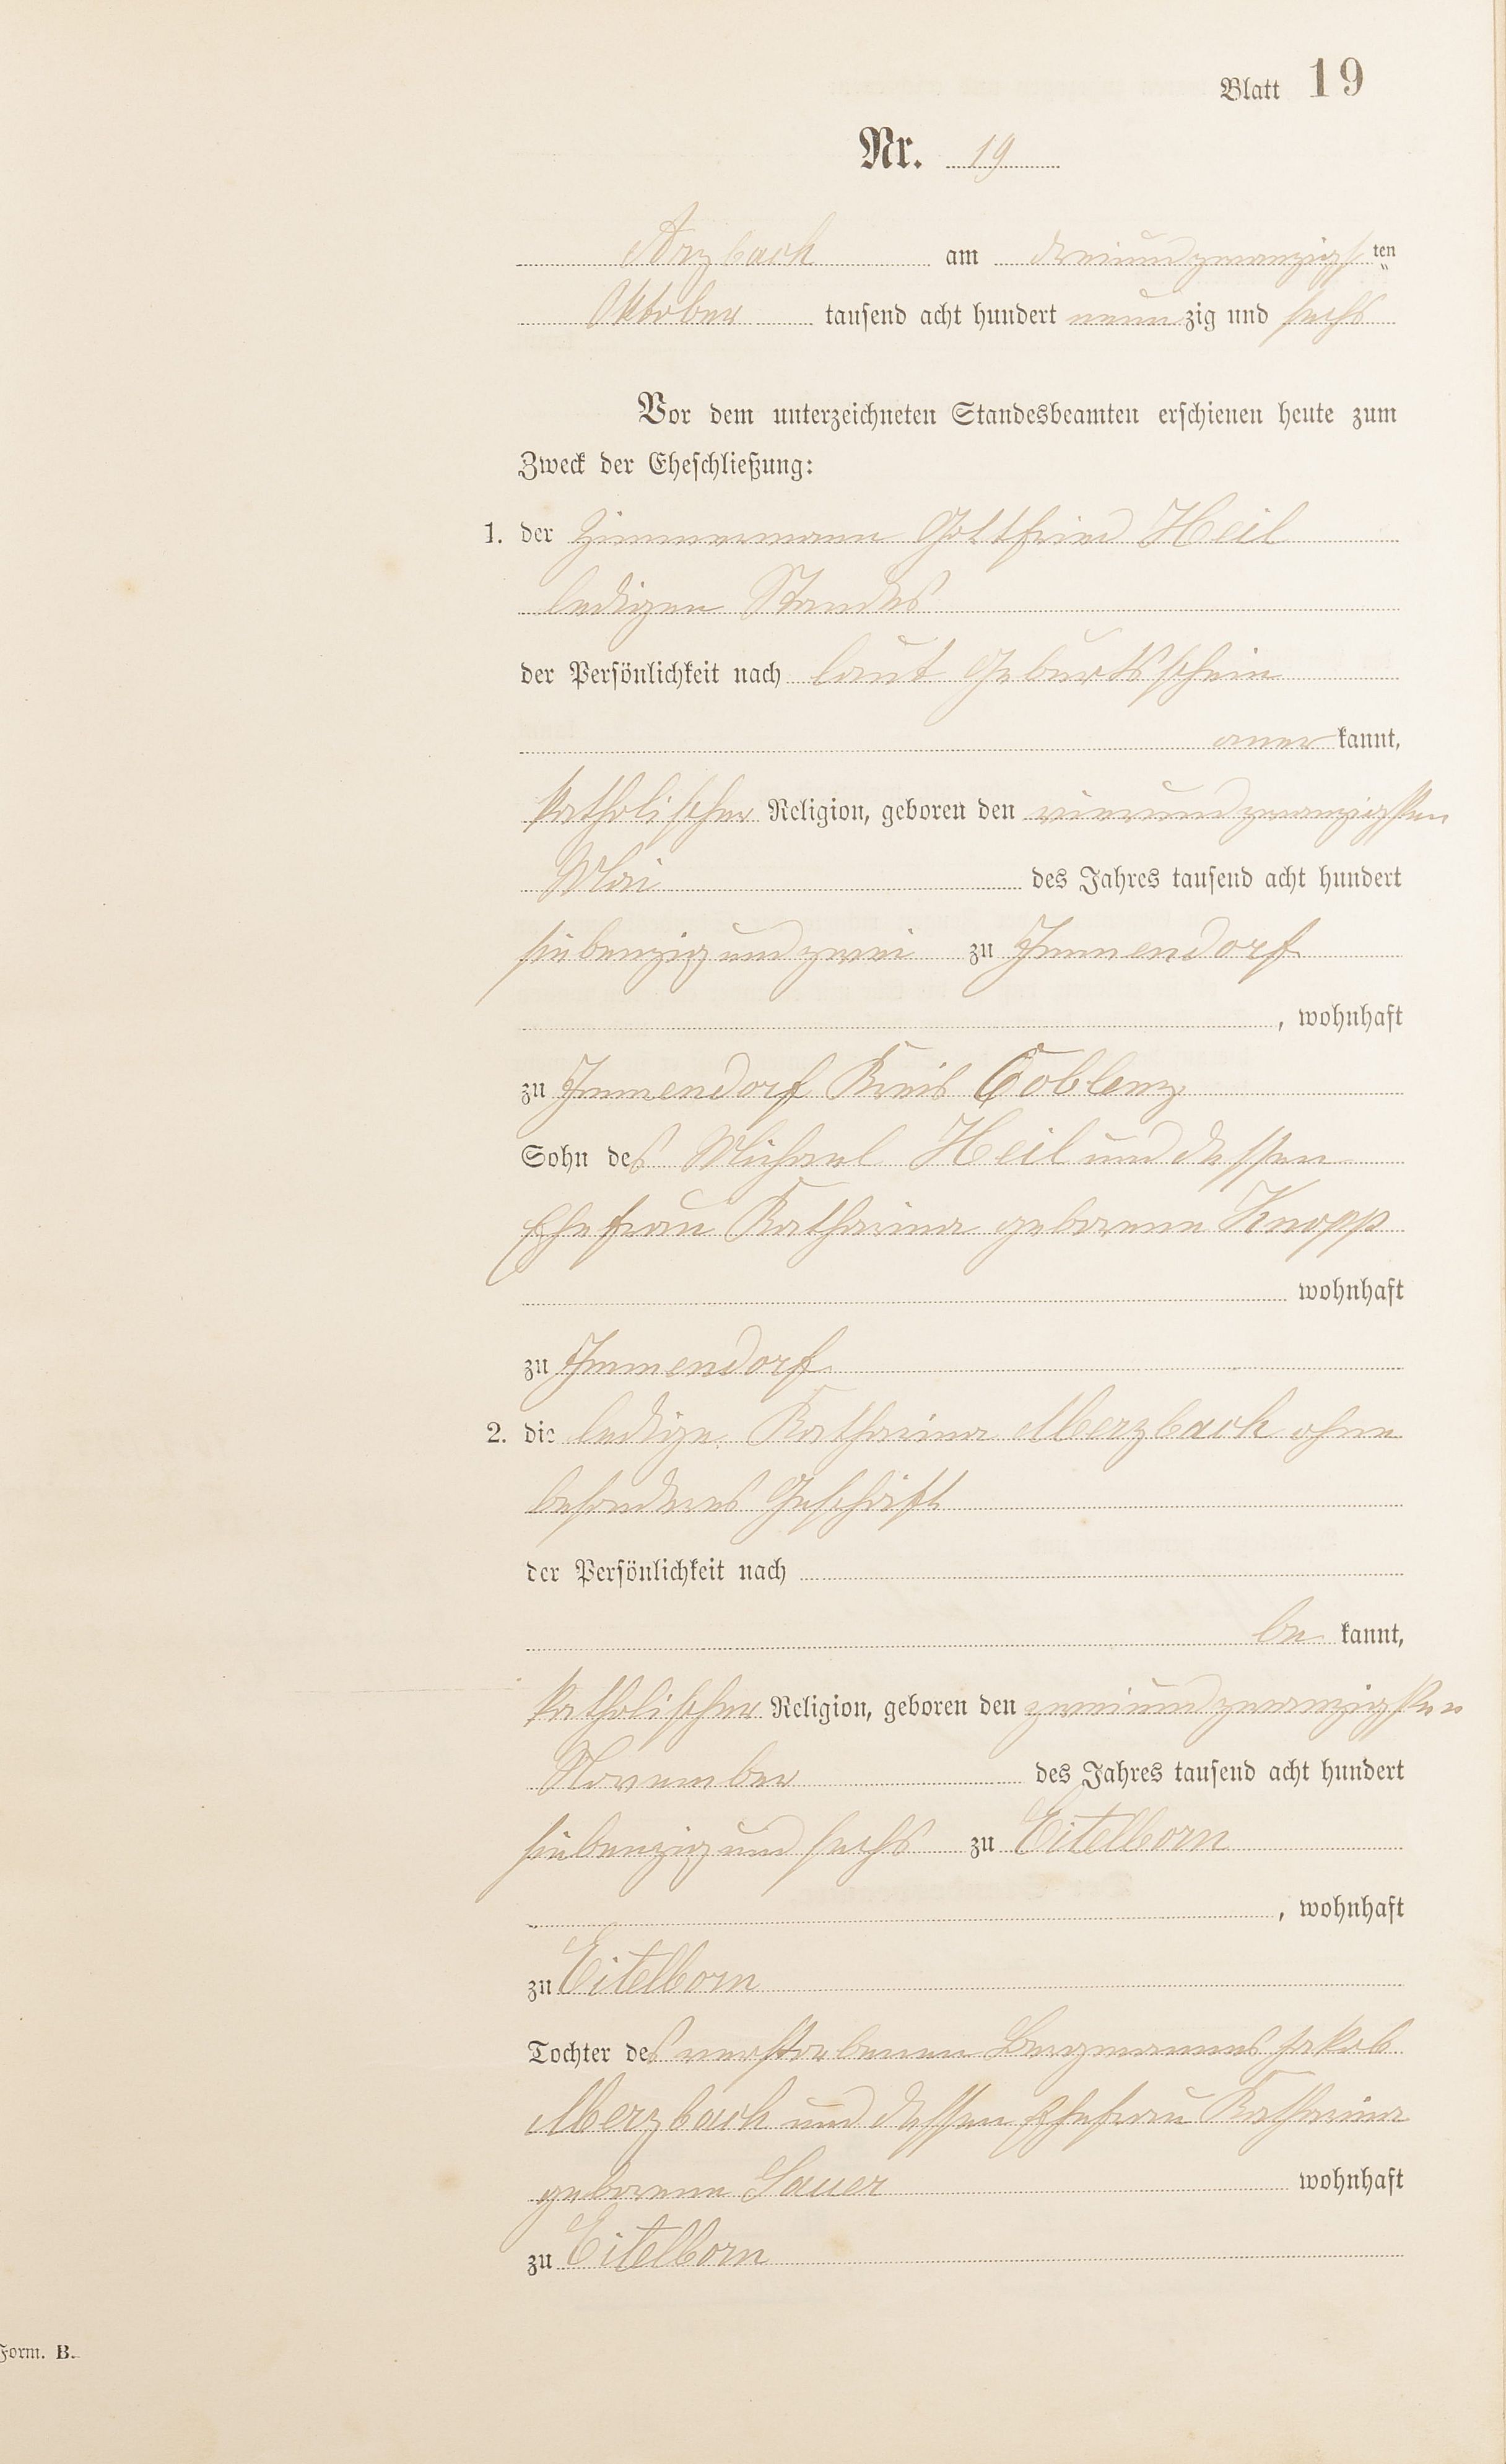 Blatt 19
Nr. 19
Arzbach am dreiundzwanzigsten
Oktober tausend acht hundert neunzig und sechs
Vor dem unterzeichneten Standesbeamten erschienen heute zum
Zweck der Eheschließung:
1. der Zimmermann Gottfried Heil
ledigen Standes
der Persönlichkeit nach laut Geburtsschein
anerkannt,
katholischer Religion, geboren den vierundzwanzigsten
Mai des Jahres tausend acht hundert
siebenzig und zwei zu Immendorf
, wohnhaft
zu Immendorf Kreis Coblenz
Sohn des Michael Heil und dessen
Ehefrau Katharina geborene Knopp
wohnhaft
zu Immendorf
2. die ledige Katharina Merzbach ohne
besonderes Geschäft
der Persönlichkeit nach
be kannt,
katholischer Religion, geboren den zweiundzwanzigsten
November des Jahres tausend acht hundert
siebenzig und sechs zu Eitelborn
, wohnhaft
zu Eitelborn
Tochter des verstorbenen Bergmannes Jakob
Merzbach und dessen Ehefrau Katharina
geborene Sauer wohnhaft
zu Eitelborn
Form. B.